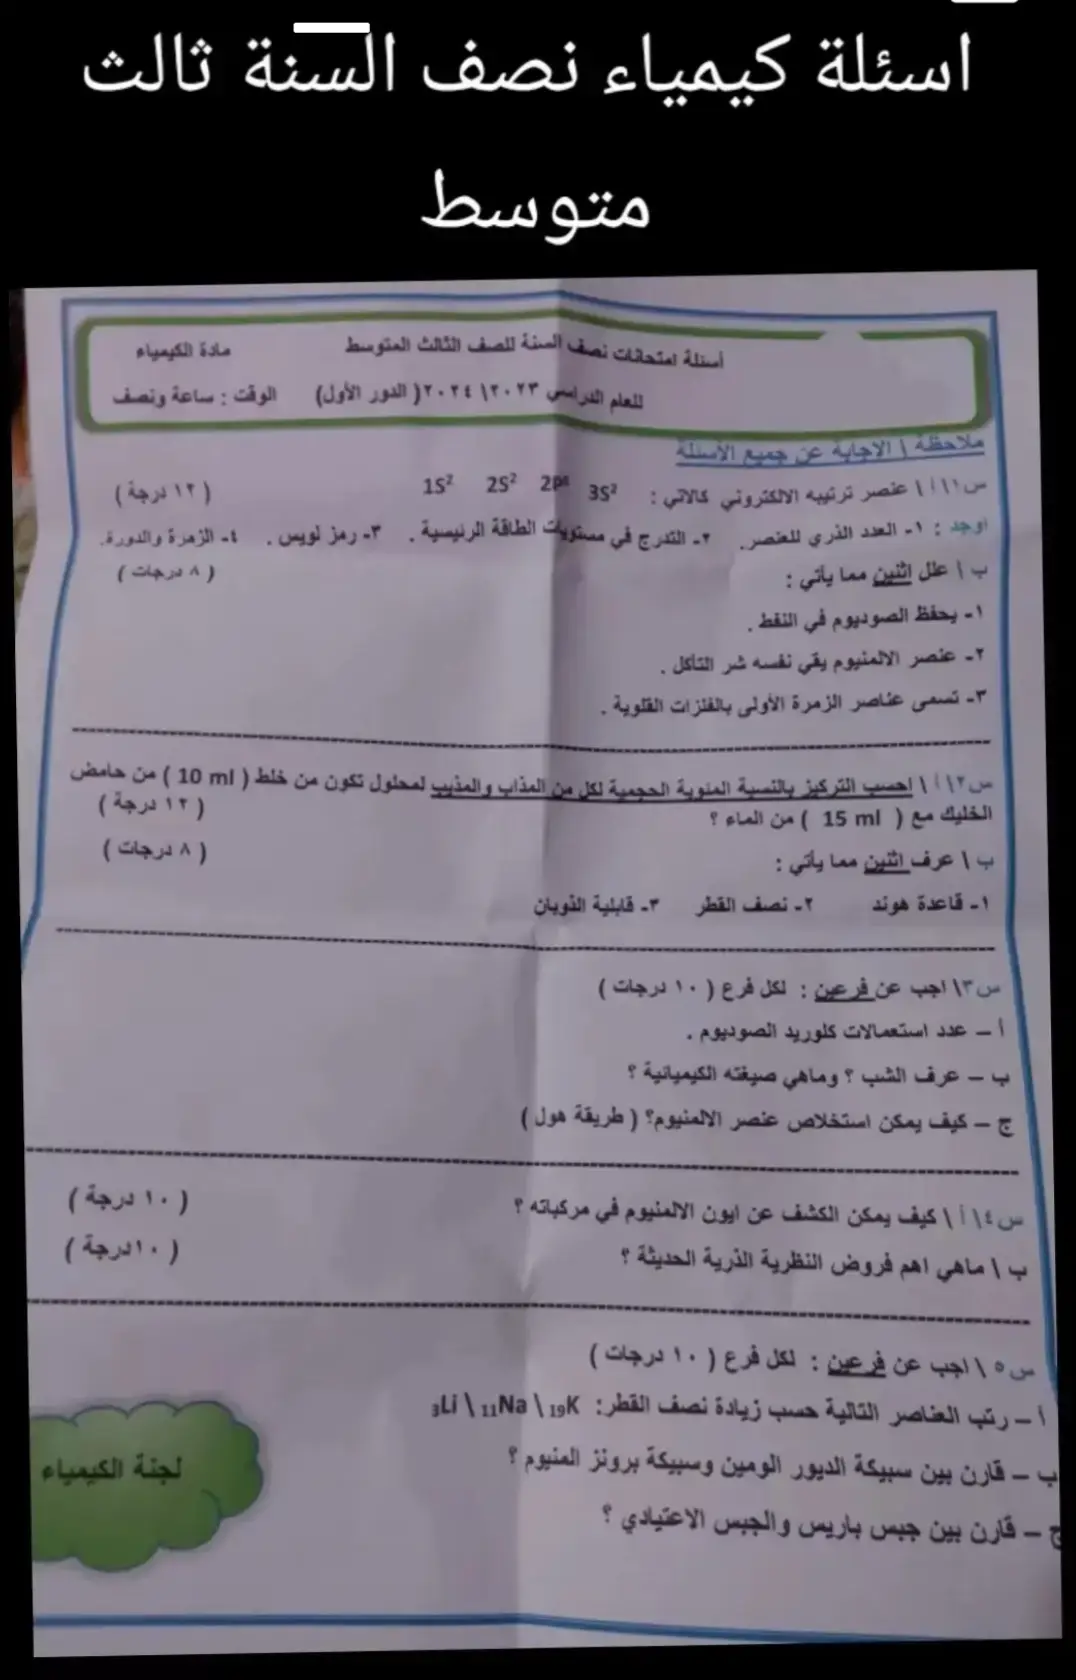 اسئلة كيمياء نصف السنة ثالث
متوسط
أسئلة امتحانات نصف السنة للصف الثالث المتوسط مادة الكيمياء
للعام الدراسي ٢٠٢٣\ ٢٠٢٤ ( الدور الأول) الوقت : ساعة ونصف
ملاحظة \ الاجابة عن جميع الأسئلة
س١\ أ \ عنصر ترتيبه الالكتروني كالاتي : 1S² 2S² 2P⁶ 3S² ( ١٢ درجة )
اوجد : ١- العدد الذري للعنصر. ٢- التدرج في مستويات الطاقة الرئيسية . ٣- رمز لويس . ٤- الزمرة والدورة.
ب \ علل اثنين مما يأتي : ( ٨ درجات )
١- يحفظ الصوديوم في النفط .
٢- عنصر الالمنيوم يقي نفسه شر التأكل .
٣- تسمى عناصر الزمرة الأولى بالفلزات القلوية .
س٢\ أ \ احسب التركيز بالنسبة المئوية الحجمية لكل من المذاب والمذيب لمحلول تكون من خلط ( 10 ml ) من حامض
الخليك مع ( 15 ml ) من الماء ؟ ( ١٢ درجة )
ب \ عرف اثنين مما يأتي : ( ٨ درجات )
١- قاعدة هوند ٢- نصف القطر ٣- قابلية الذوبان
س٣\ اجب عن فرعين : لكل فرع ( ١٠ درجات )
أ – عدد استعمالات كلوريد الصوديوم .
ب – عرف الشب ؟ وماهي صيغته الكيميائية ؟
ج – كيف يمكن استخلاص عنصر الالمنيوم؟ ( طريقة هول )
س٤\ أ \ كيف يمكن الكشف عن ايون الالمنيوم في مركباته ؟ ( ١٠ درجة )
ب \ ماهي اهم فروض النظرية الذرية الحديثة ؟ ( ١٠درجة )
س٥ \ اجب عن فرعين : لكل فرع ( ١٠ درجات )
أ – رتب العناصر التالية حسب زيادة نصف القطر: ₃Li \ ₁₁Na \ ₁₉K
ب – قارن بين سبيكة الديور الومين وسبيكة برونز المنيوم ؟
ج – قارن بين جبس باريس والجبس الاعتيادي ؟
لجنة الكيمياء